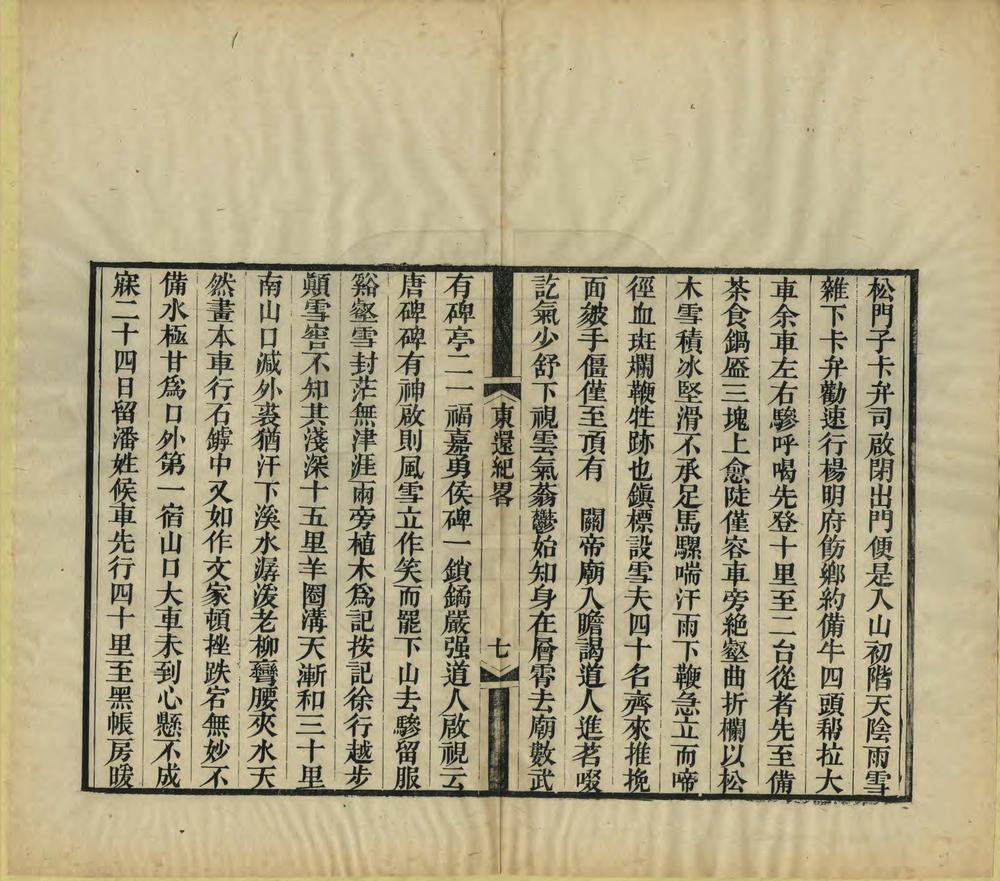 松門子卡弁司啟閉出門便是入山初階天陰雨雪
雜下卡弁勸速行楊明府飭鄉約備牛四頭幫拉大
車余車左右驂呼喝先登十里至二台從者先至備
茶食鍋盔三塊上愈陡僅容車旁絕壑曲折欄以松
木雪積冰堅滑不承足馬騾喘汗雨下鞭急立而啼
徑血斑斕鞭牲跡也鎮標設雪夫四十名齊來推挽
面皴手僵僅至頂有　關帝廟入瞻謁道人進茗啜
訖氣少舒下視雲氣蓊鬱始知身在層霄去廟數武
東還紀畧
七
有碑亭二一福嘉勇侯碑一鎖鐍嚴强道人啟視云
唐碑碑有神啟則風雪立作笑而罷下山去驂留服
谿壑雪封茫無津涯兩旁植木為記按記徐行越步
顛雪窖不知其淺深十五里羊圈溝天漸和三十里
南山口減外裘猶汗下溪水潺湲老柳彎腰夾水天
然畫本車行石罅中又如作文家頓挫跌宕無妙不
備水極甘為口外第一宿山口大車未到心懸不成
寐二十四日留潘姓候車先行四十里至黑帳房暖